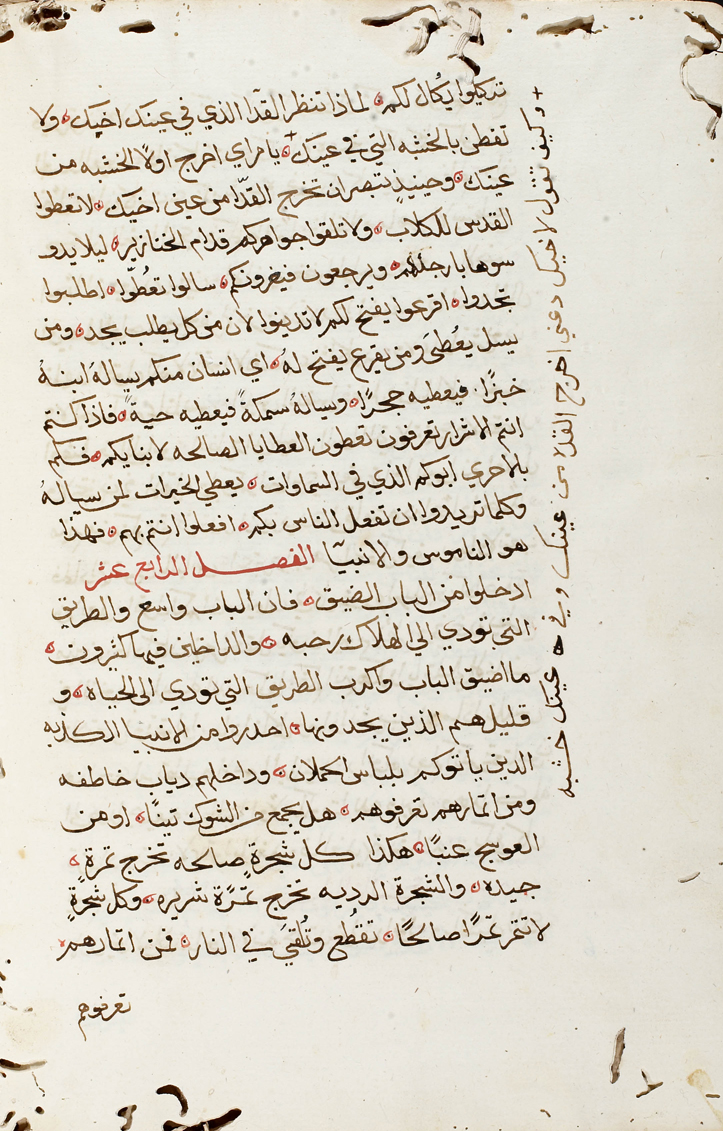 تدكيلوا يكال لكم لماذا تنظر القدا الذي في عينك اخيك ولا
تفطن بالخشبه التي في عينك + يا مراي اخرج اولا الخشبه من
عينك وحينيذ تتبصر ان تخرج القدّا من عيني اخيك لا تعطوا
القدس للكلاب ولا تلقوا جواهركم قدام الخنازير ليلا يدو
سوها بارجلهم ويرجعون فيمزقونكم سالوا تعطوا اطلبوا
تجدوا اقرعوا يفتح لكم لا تدينوا لان من كل يطلب يجد ومن
يسل يعطى ومن يقرع يفتح له اي انسان منكم يساله ابنه
خبزا فيعطيه حجرا ويساله سمكة فيعطيه حية فاذا كنتم
انتم الاشرار تعرفون تعطون العطايا الصالحه لابنايكم فكم
بالاحري ابوكم الذي في السماوات يعطي الخيرات لمن سياله
وكلما تريدوا ان تفعل الناس بكم افعلوا انتم بهم فهذا
هو الناموس والانبيا الفصل الرابع عشر
ادخلوا من الباب الضيق فان الباب واسع والطريق
التي تودي الي الهلاك رحبه والداخلين فيها كثيرون
ما اضيق الباب واكرب الطريق التي تودي الي الحياه و
قليل هم الذين يجدونها احدروا من الانبيا الكدبه
الدين ياتوكم بلباس الحملان وداخلهم دياب خاطفه
ومن اثمارهم تعرفوهم هل يجمع من الشوك تينًا او من
العوسج عنبًا هكذا كل شجرةٍ صالحه تخرج ثمرةٍ
جيده والشجرة الرديه تخرج ثمرة شريره وكل شجرةٍ
لا تثمر ثمرًا صالحًا تقطع وتُلقيَ في النار فمن اثمارهم
تعرفوهم
+ وكيف تقول لاخيك دعني اخرج القدا من عينك وفي عينك خشبه